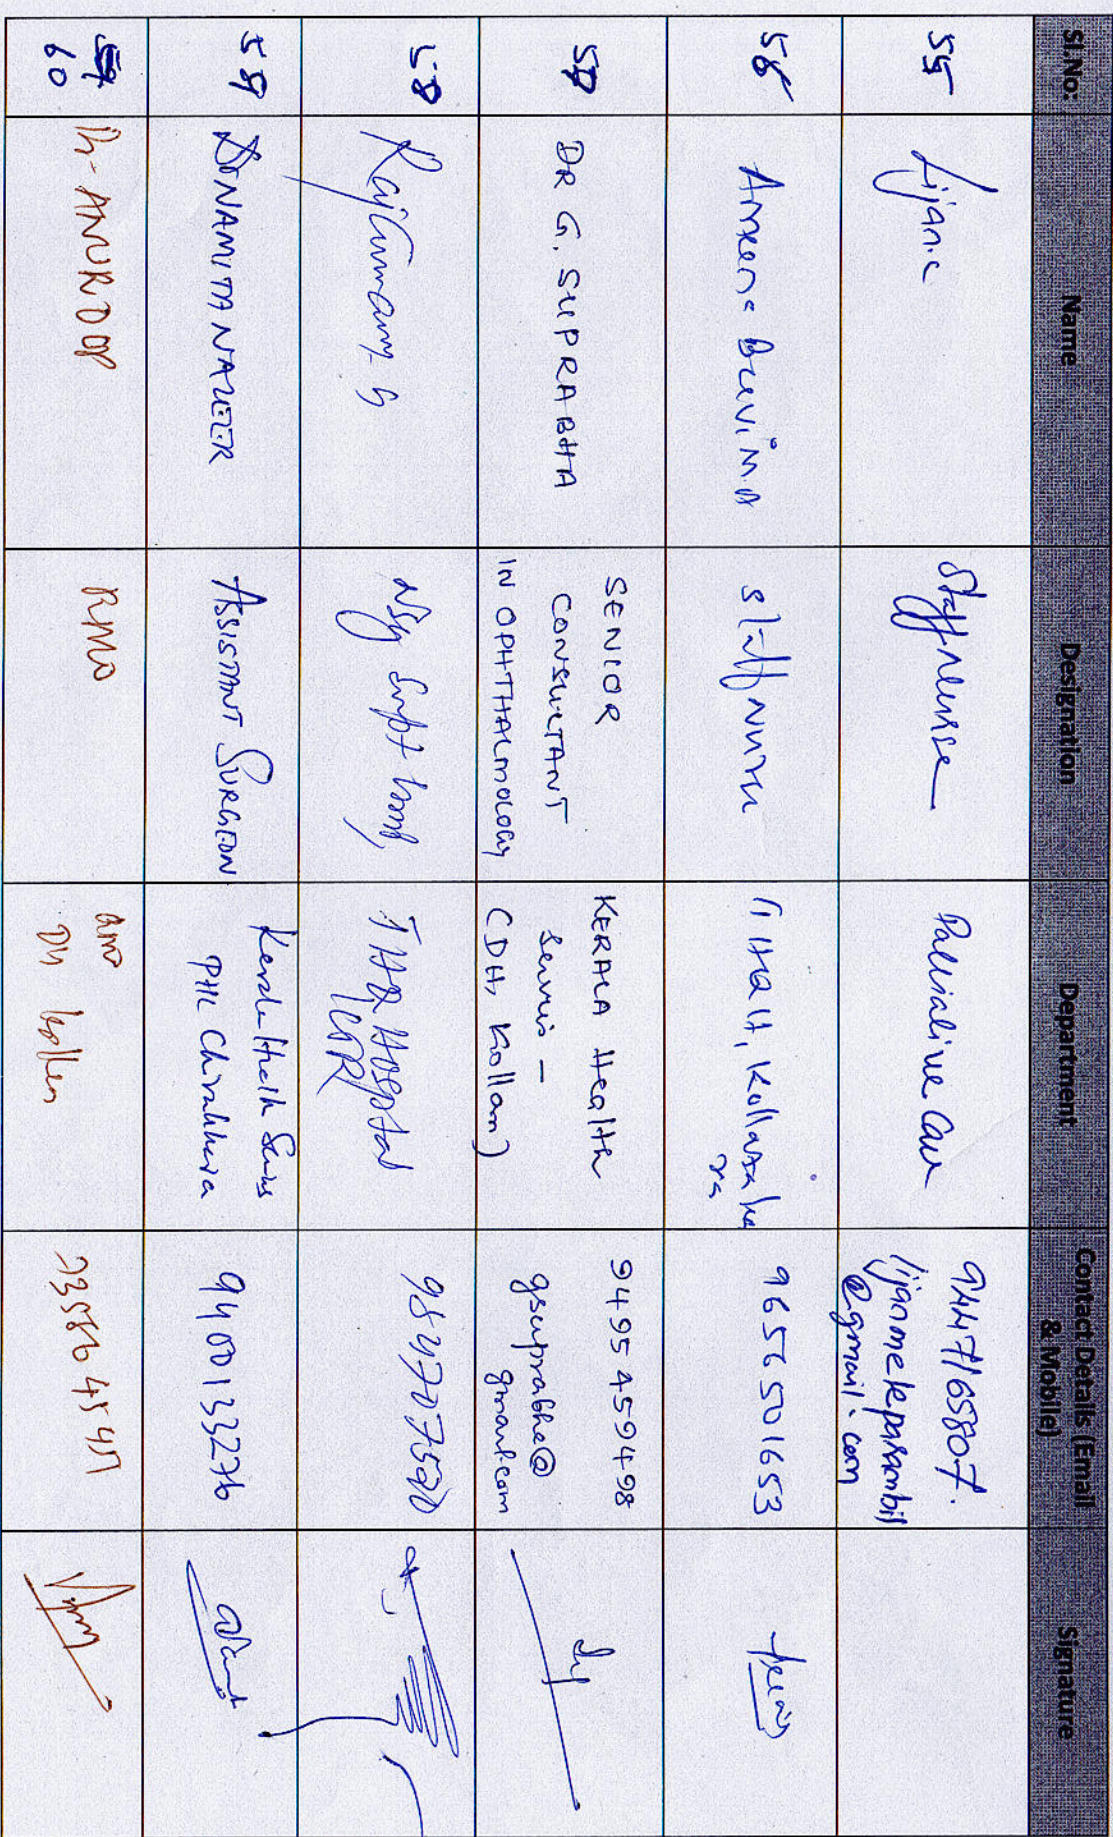 Sl.No: Name Designation Department Contact Details (Email & Mobile) Signature
55 Lijan.c Staff Nurse Palliative Care 9447165807.
lijanmeleparambil
@gmail.com
56 Ameena Beevi M.A Staff Nurse THQH, Kottarakka
ra 9656501653
57 DR G. SUPRABHA SENIOR
CONSULTANT
IN OPHTHALMOLOGY KERALA Health
Servics –
(DH, Kollam) 9495459498
gsuprabha@
gmail.com
58 Rajkumary G Nsg Supt THQ Hospital
984707520
59 Dr NAMITA NAZEER ASSISTANT SURGEON Kerala Health Servis
PHC Chirakkara 9400133276
60 Dr. ANUROOP RMO DH Kollam